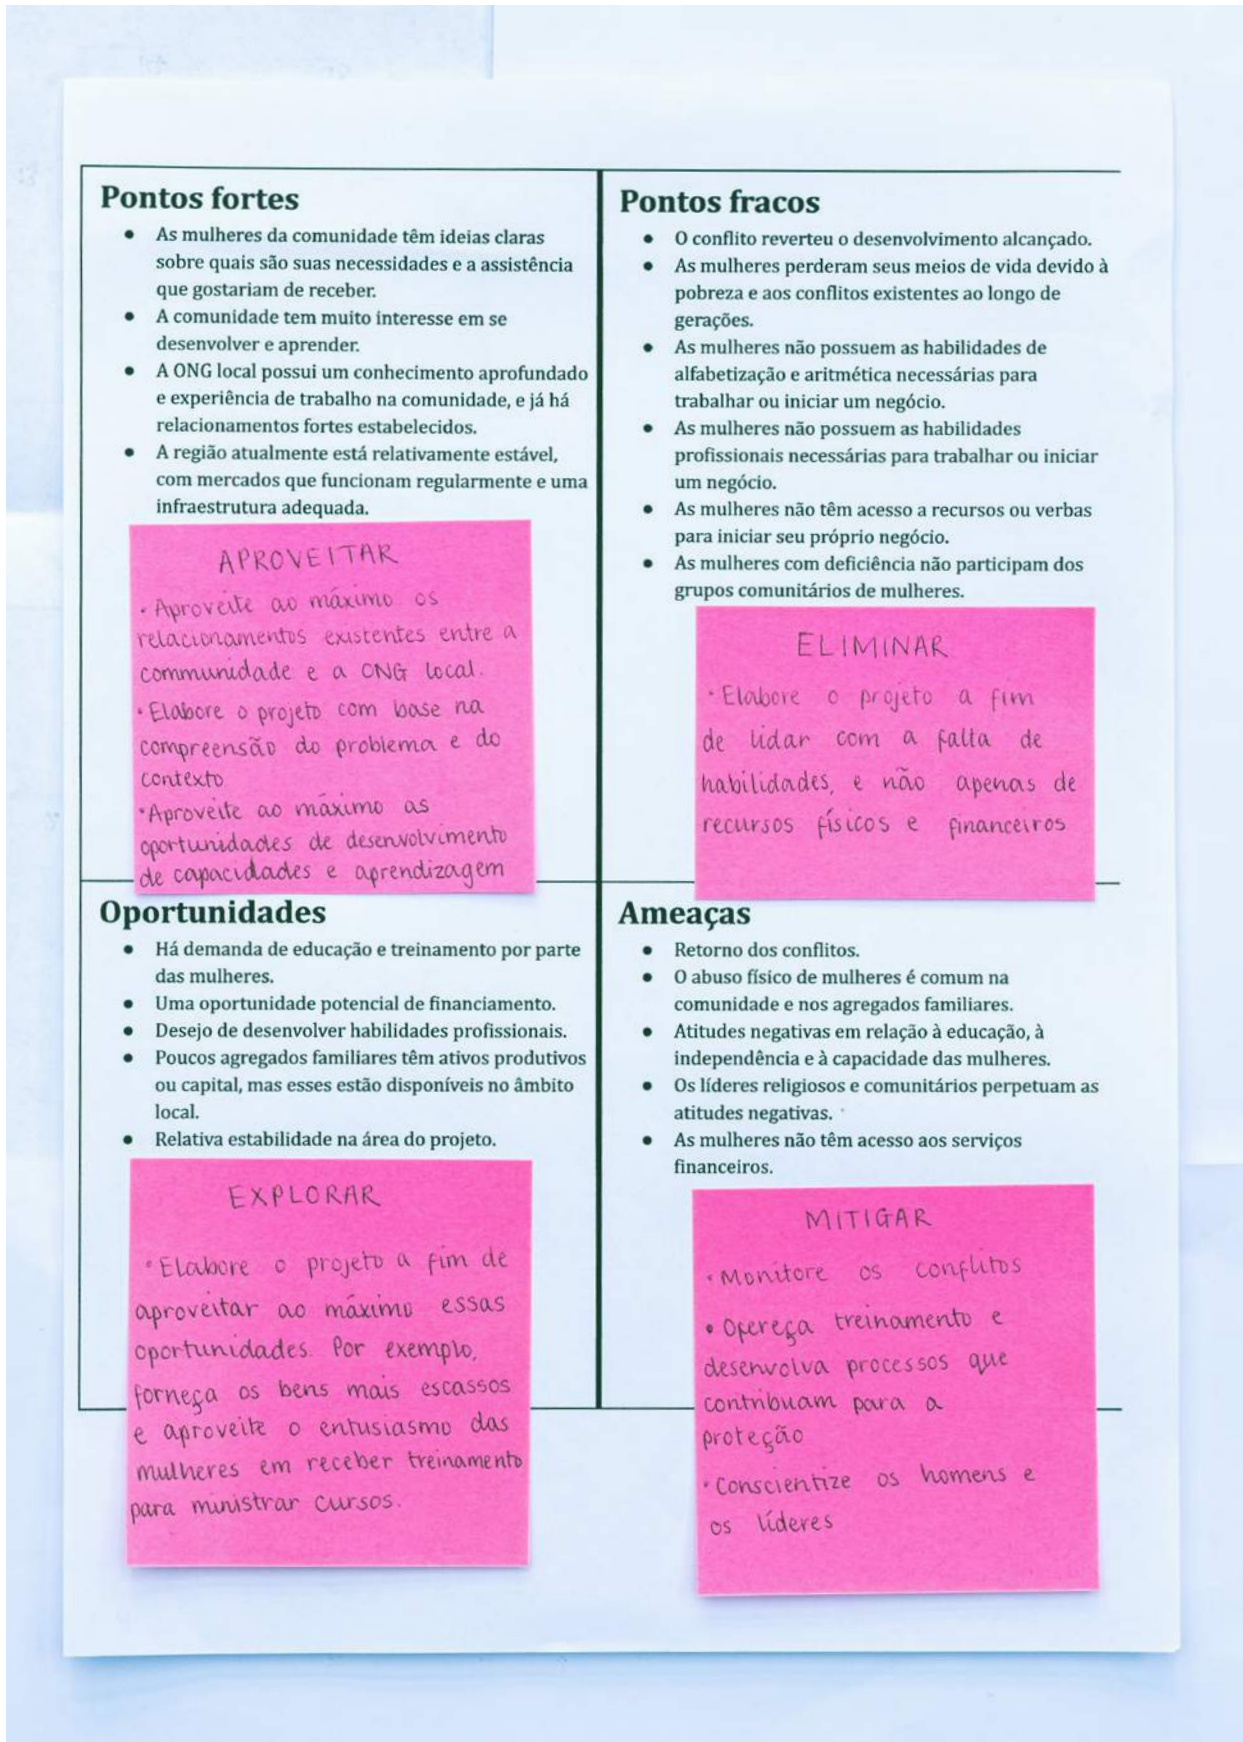 Pontos fortes
● As mulheres da comunidade têm ideias claras
sobre quais são suas necessidades e a assistência
que gostariam de receber.
● A comunidade tem muito interesse em se
desenvolver e aprender.
● A ONG local possui um conhecimento aprofundado
e experiência de trabalho na comunidade, e já há
relacionamentos fortes estabelecidos.
● A região atualmente está relativamente estável,
com mercados que funcionam regularmente e uma
infraestrutura adequada.
APROVEITAR
• Aproveite ao máximo os
relacionamentos existentes entre a
communidade e a ONG local.
• Elabore o projeto com base na
compreensão do problema e do
contexto
• Aproveite ao máximo as
oportunidades de desenvolvimento
de capacidades e aprendizagem
Pontos fracos
● O conflito reverteu o desenvolvimento alcançado.
● As mulheres perderam seus meios de vida devido à
pobreza e aos conflitos existentes ao longo de
gerações.
● As mulheres não possuem as habilidades de
alfabetização e aritmética necessárias para
trabalhar ou iniciar um negócio.
● As mulheres não possuem as habilidades
profissionais necessárias para trabalhar ou iniciar
um negócio.
● As mulheres não têm acesso a recursos ou verbas
para iniciar seu próprio negócio.
● As mulheres com deficiência não participam dos
grupos comunitários de mulheres.
ELIMINAR
• Elabore o projeto a fim
de lidar com a falta de
habilidades, e não apenas de
recursos físicos e financeiros
Oportunidades
● Há demanda de educação e treinamento por parte
das mulheres.
● Uma oportunidade potencial de financiamento.
● Desejo de desenvolver habilidades profissionais.
● Poucos agregados familiares têm ativos produtivos
ou capital, mas esses estão disponíveis no âmbito
local.
● Relativa estabilidade na área do projeto.
EXPLORAR
• Elabore o projeto a fim de
aproveitar ao máximo essas
oportunidades. Por exemplo,
forneça os bens mais escassos
e aproveite o entusiasmo das
mulheres em receber treinamento
para ministrar cursos.
Ameaças
● Retorno dos conflitos.
● O abuso físico de mulheres é comum na
comunidade e nos agregados familiares.
● Atitudes negativas em relação à educação, à
independência e à capacidade das mulheres.
● Os líderes religiosos e comunitários perpetuam as
atitudes negativas.
● As mulheres não têm acesso aos serviços
financeiros.
MITIGAR
• Monitore os conflitos
• Ofereça treinamento e
desenvolva processos que
contribuam para a
proteção
• Conscientize os homens e
os líderes